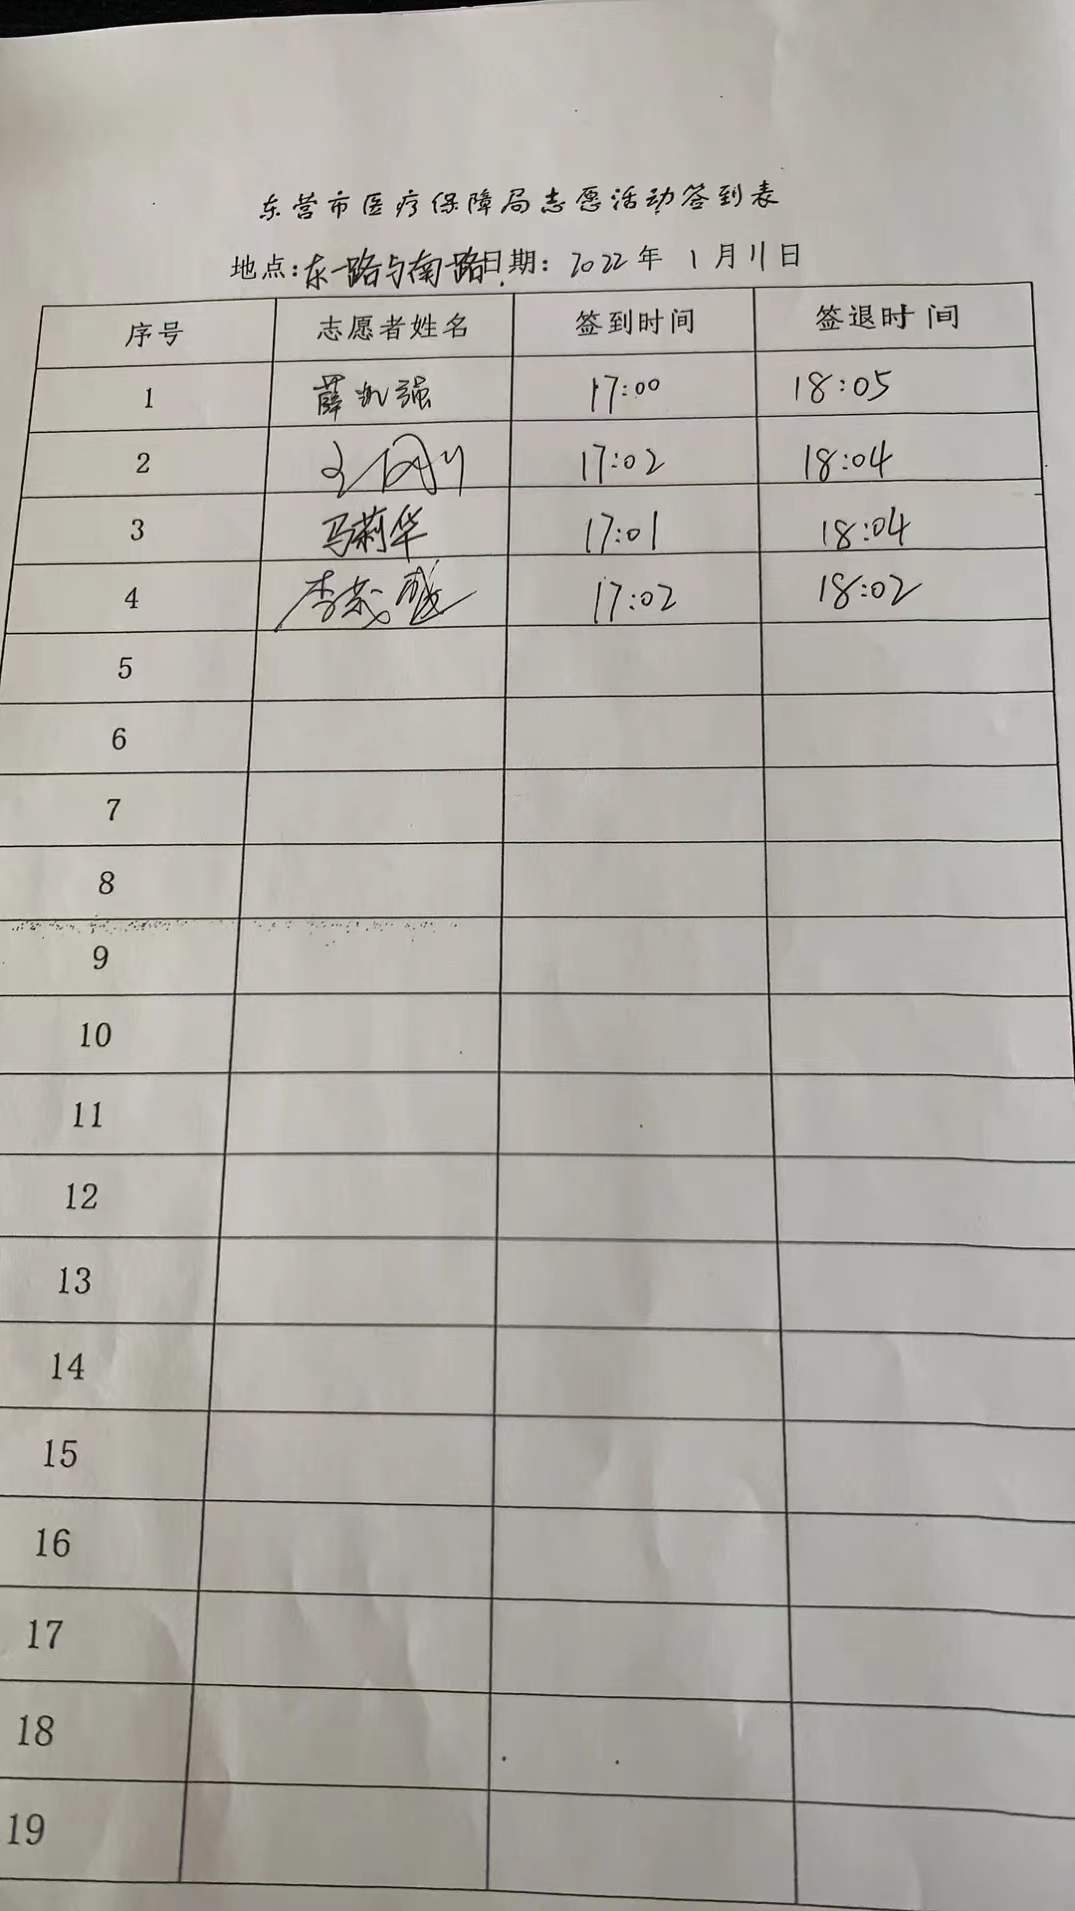 东营市医疗保障局志愿活动签到表
地点:东一路与南一路日期: 2022年 1月11日
序号 志愿者姓名 签到时间 签退时间
1 薛凯强 17:00 18:05
2 17:02 18:04
3 马莉华 17:01 18:04
4 李 17:02 18:02
5
6
7
8
9
10
11
12
13
14
15
16
17
18
19